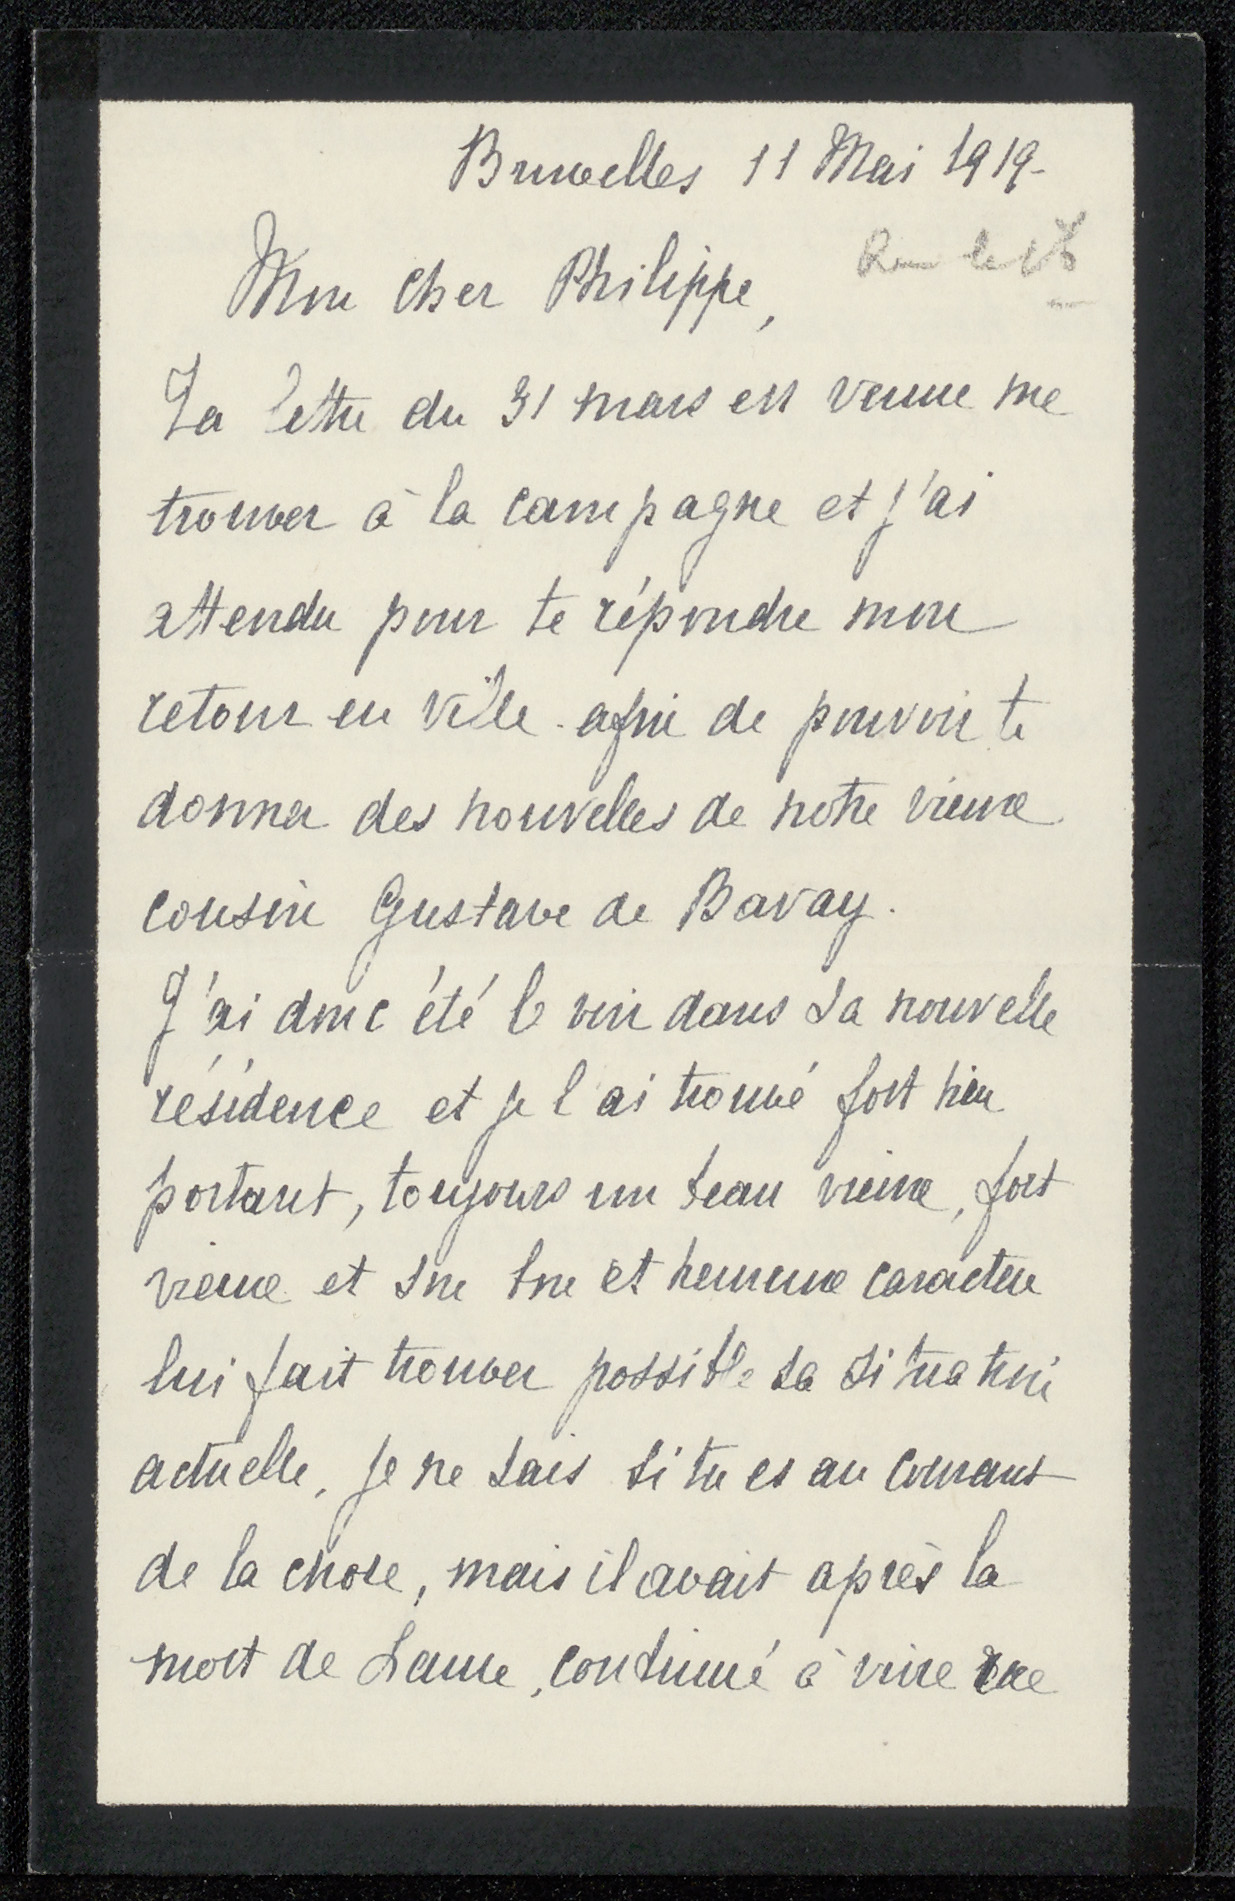 Bruxelles 11 Mai 1919-
Mon cher Philippe,
Ta lettre du 31 mars est venue me
trouver à la campagne et j'ai
attendu pour te répondre mon
retour en ville afin de pouvoir te
donner des nouvelles de notre vieux
cousin Gustave de Bavay.
J'ai donc été le voir dans sa nouvelle
résidence et je l'ai trouvé fort bien
portant, toujours un beau vieux, fort
vieux et son bon et heureux caractère
lui fait trouver possible sa situation
actuelle. Je ne sais si tu es au courant
de la chose, mais il avait après la
mort de Laure, continué à vivre rue